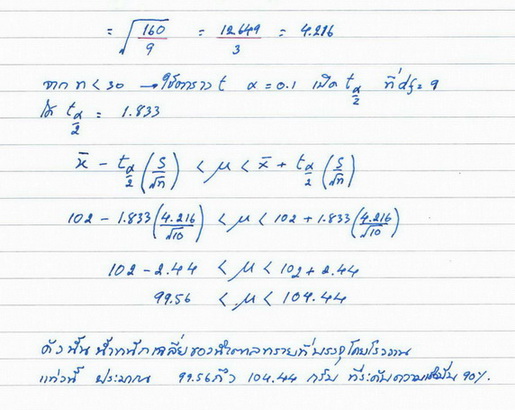 = √(160/9) = 12.649/3 = 4.216
จาก n < 30 → ใช้ตาราง t α = 0.1 เปิด t α/2 ที่ df = 9
ได้ t α/2 = 1.833
x̄ - t α/2 (S/√n) < μ < x̄ + t α/2 (S/√n)
102 - 1.833(4.216/√10) < μ < 102 + 1.833(4.216/√10)
102 - 2.44 < μ < 102 + 2.44
99.56 < μ < 104.44
ดังนั้น น้ำหนักเฉลี่ยของน้ำตาลทรายที่บรรจุโดยโรงงาน
แห่งนี้ ประมาณ 99.56 ถึง 104.44 กรัม ที่ระดับความเชื่อมั่น 90%.